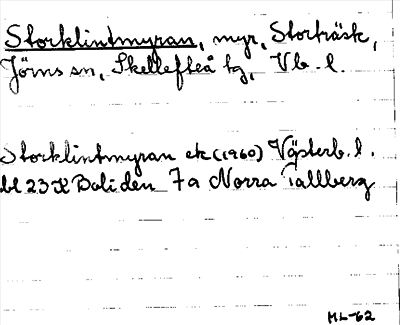 Storklintmyran, myr, Storträsk,
Jörns sn, Skellefteå tg, Vb. l.
Storklintmyran ek (1960) Västerb. l.
bl 23 K Boliden 7a Norra Tallberg
ML-62